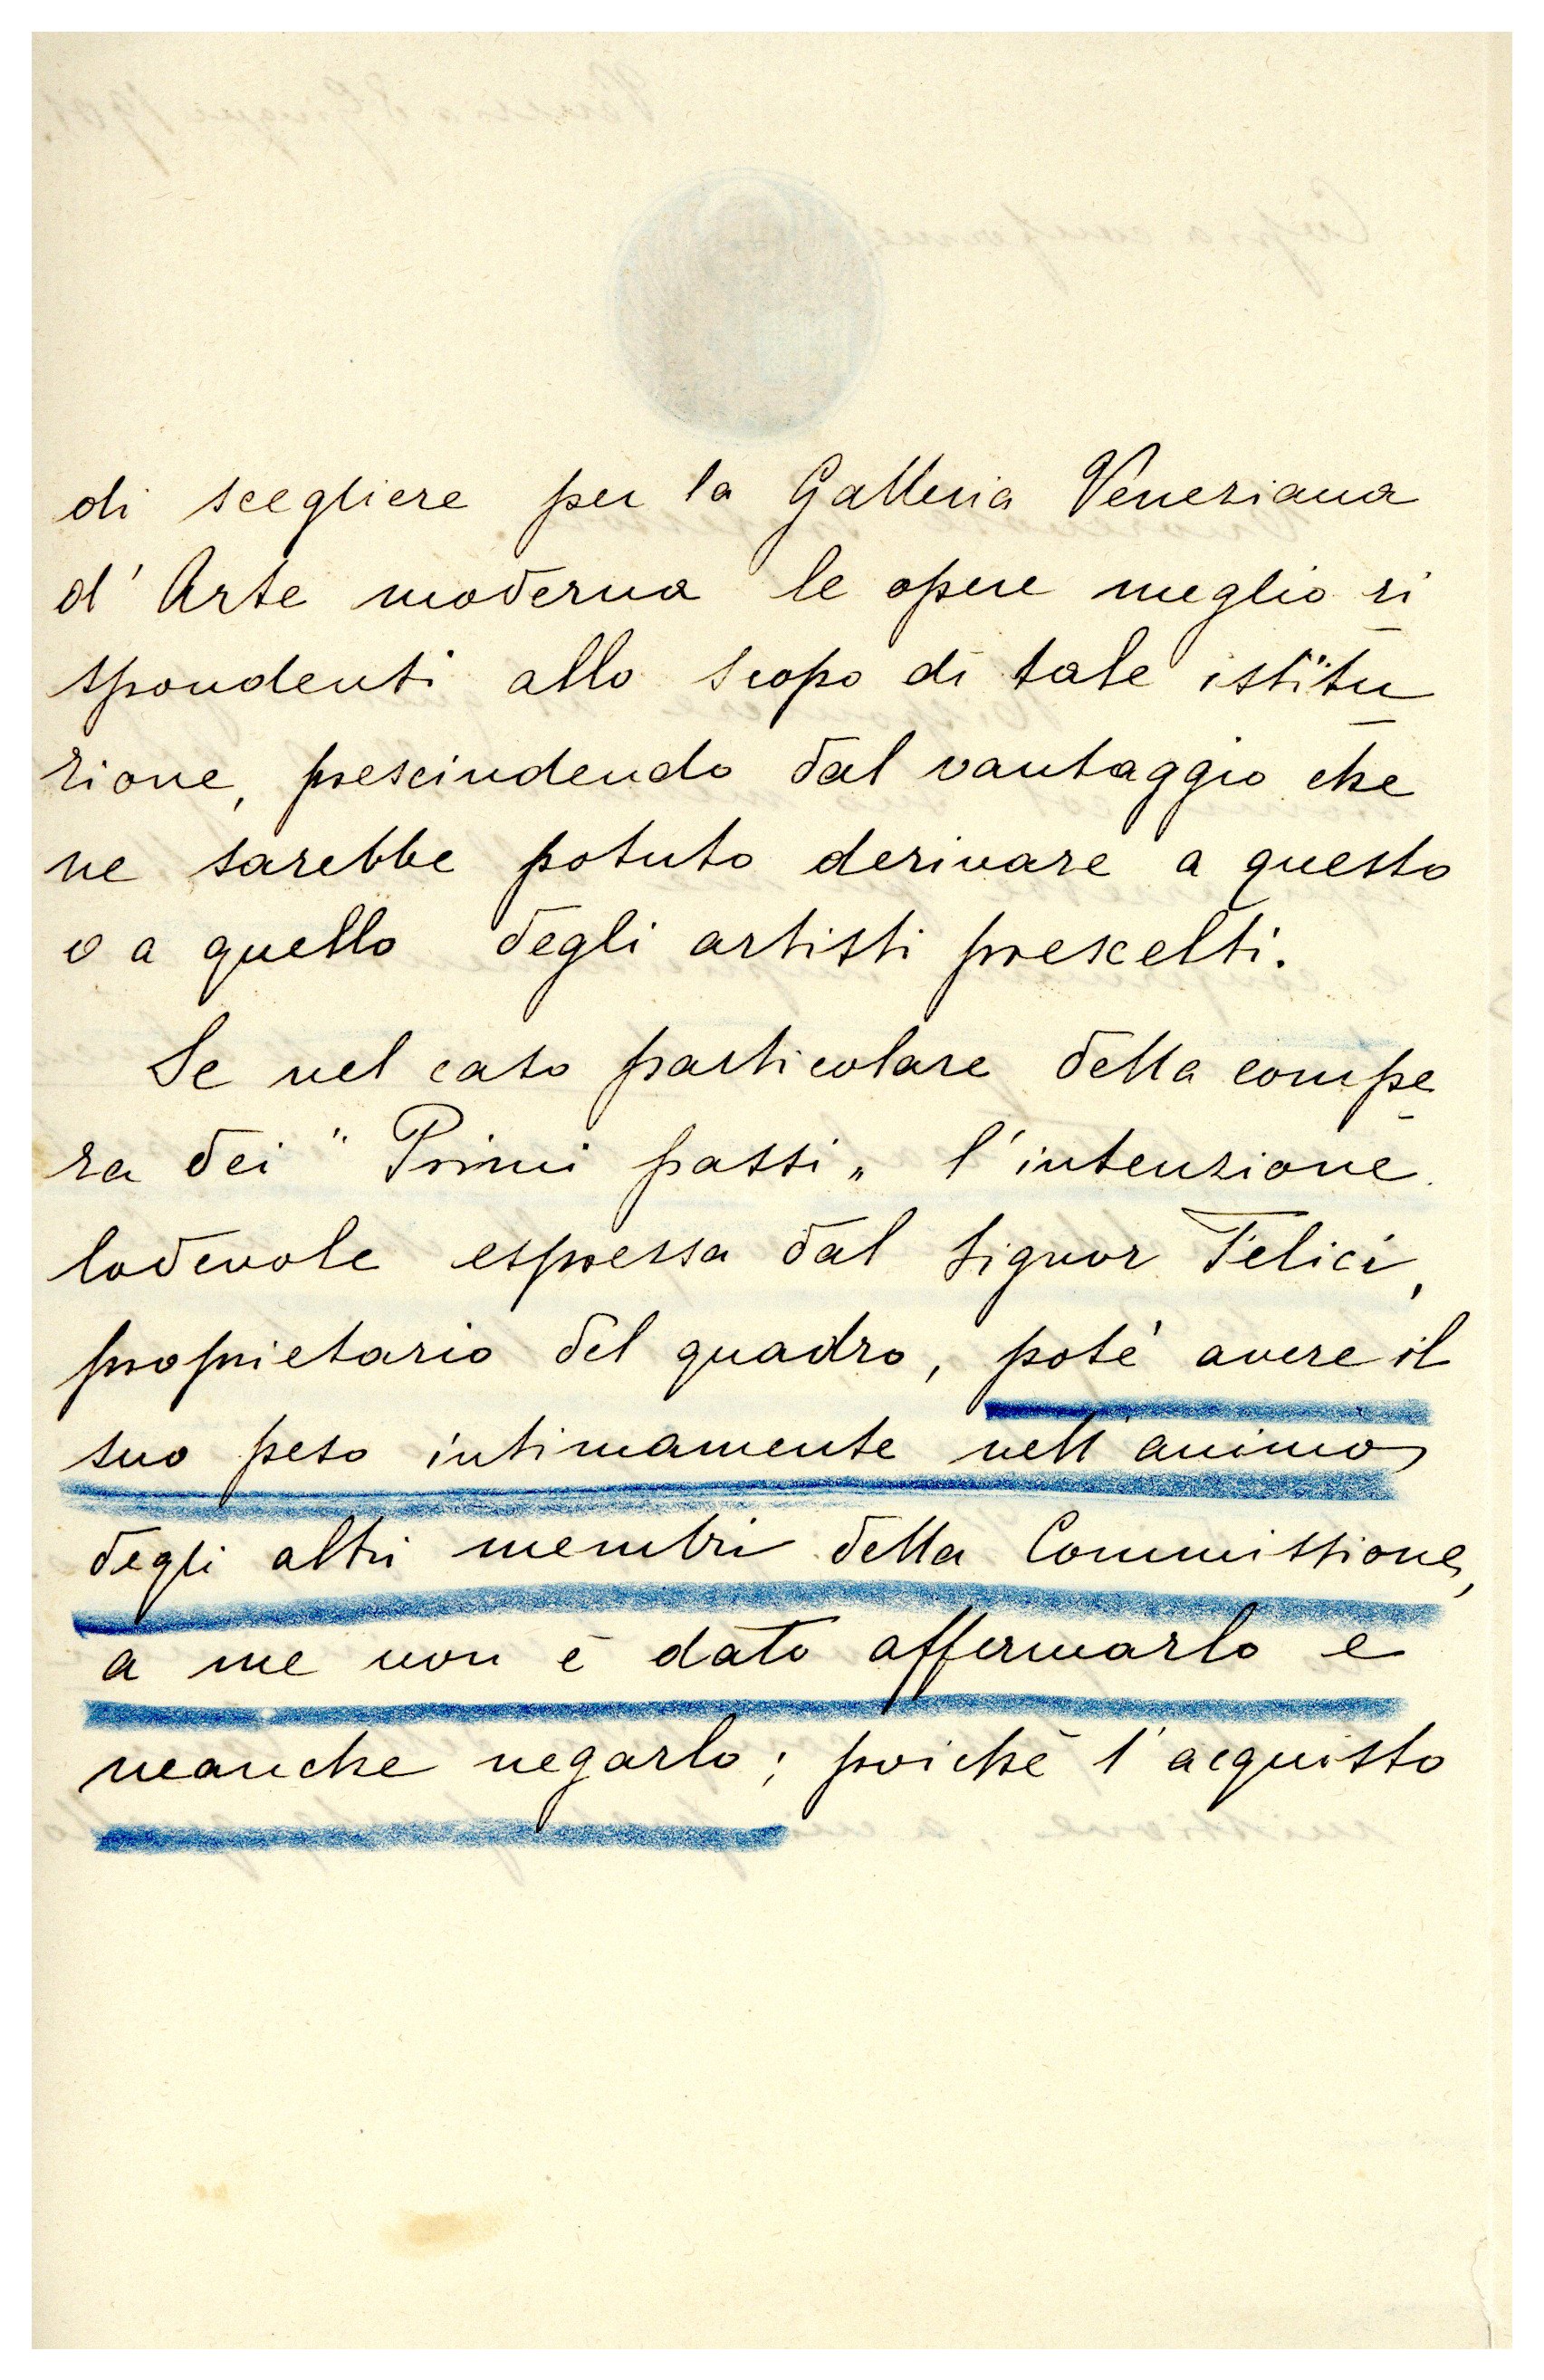 di scegliere per la Galleria Veneziana
d'Arte moderna le opere meglio ri
spondenti allo scopo di tale istitu
zione, prescindendo dal vantaggio che
ne sarebbe potuto derivare a questo
o a quello degli artisti prescelti.
Se nel caso particolare della compe
ra dei "Primi passi„ l'intenzione
lodevole espressa dal Signor Felici,
proprietario del quadro, potè avere il
suo peso intimamente nell'animo
degli altri membri della Commissione,
a me non è dato affermarlo e
neanche negarlo; poichè l'acquisto